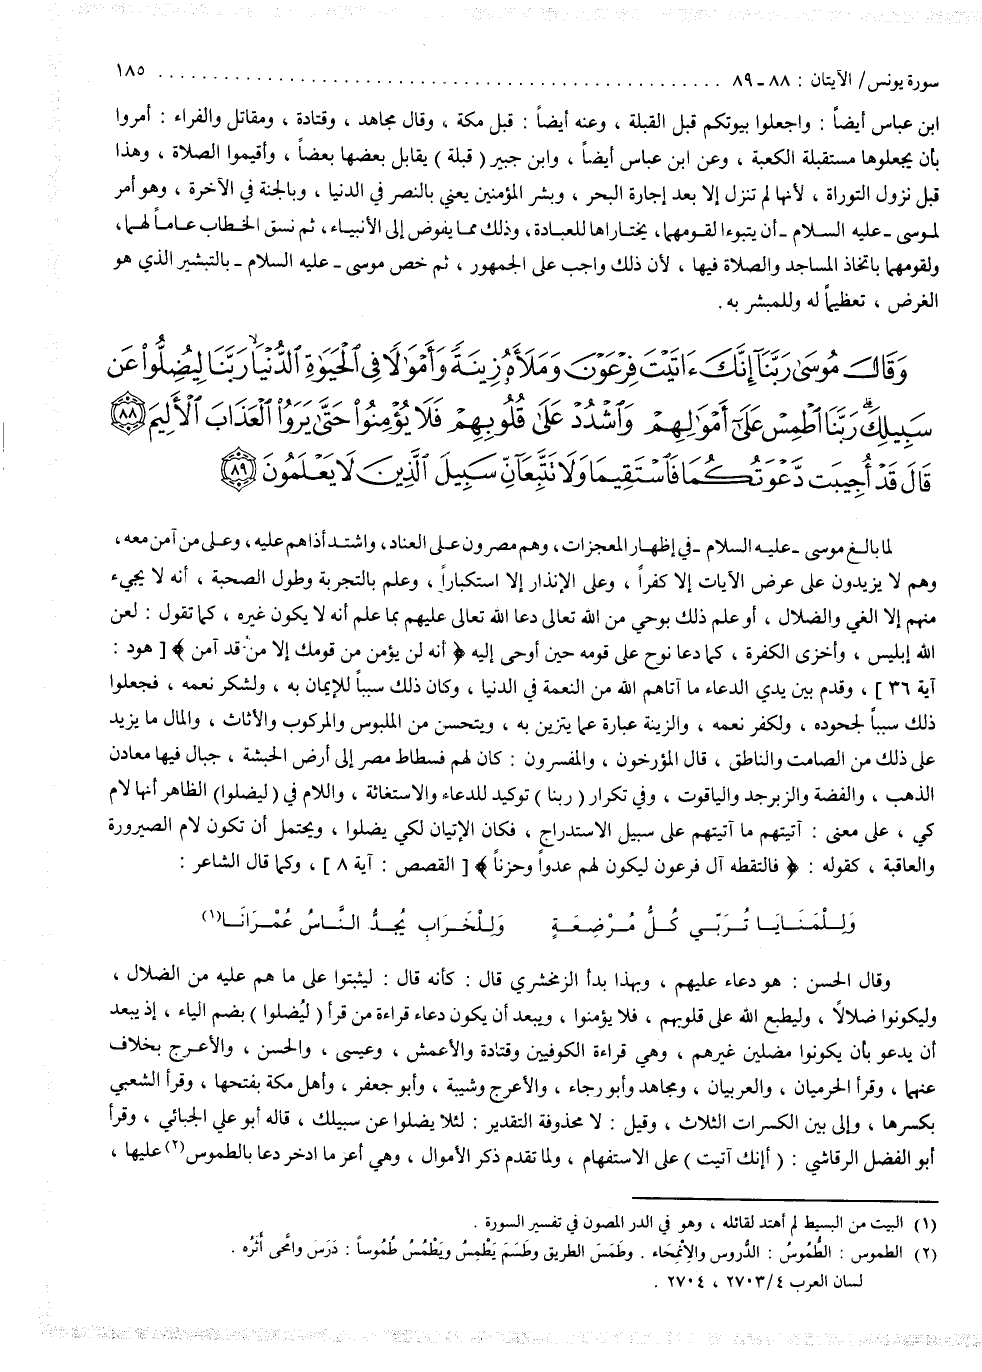 سورة يونس/ الآيتان : ٨٨ ـ ٨٩ . . . . . . . . . . . . . . . . . . . . . . . . . . . . . . . . . . . . . . . . . . . . . . . . . . . . ١٨٥
ابن عباس أيضاً : واجعلوا بيوتكم قبل القبلة ، وعنه أيضاً : قبل مكة ، وقال مجاهد ، وقتادة ، ومقاتل والفراء : أمروا
بأن يجعلوها مستقبلة الكعبة ، وعن ابن عباس أيضاً ، وابن جبير ( قبلة ) يقابل بعضها بعضاً ، وأقيموا الصلاة ، وهذا
قبل نزول التوراة ، لأنها لم تنزل إلا بعد إجارة البحر ، وبشر المؤمنين يعني بالنصر في الدنيا ، وبالجنة في الآخرة ، وهو أمر
لموسى ـ عليه السلام ـ أن يتبوءا لقومهما، يختاراها للعبادة، وذلك مما يفوض إلى الأنبياء، ثم نسق الخطاب عاماً لهما،
ولقومهما باتخاذ المساجد والصلاة فيها ، لأن ذلك واجب على الجمهور ، ثم خص موسى ـ عليه السلام ـ بالتبشير الذي هو
الغرض ، تعظيماً له وللمبشر به .
وَقَالَ مُوسَىٰ رَبَّنَآ إِنَّكَ ءَاتَيْتَ فِرْعَوْنَ وَمَلَأَهُۥ زِينَةً وَأَمْوَٰلًا فِى ٱلْحَيَوٰةِ ٱلدُّنْيَا رَبَّنَا لِيُضِلُّوا۟ عَن
سَبِيلِكَ ۖ رَبَّنَا ٱطْمِسْ عَلَىٰٓ أَمْوَٰلِهِمْ وَٱشْدُدْ عَلَىٰ قُلُوبِهِمْ فَلَا يُؤْمِنُوا۟ حَتَّىٰ يَرَوُا۟ ٱلْعَذَابَ ٱلْأَلِيمَ ٨٨
قَالَ قَدْ أُجِيبَت دَّعْوَتُكُمَا فَٱسْتَقِيمَا وَلَا تَتَّبِعَآنِّ سَبِيلَ ٱلَّذِينَ لَا يَعْلَمُونَ ٨٩
لما بالغ موسى ـ عليه السلام ـ في إظهار المعجزات، وهم مصرون على العناد، واشتد أذاهم عليه، وعلى من آمن معه،
وهم لا يزيدون على عرض الآيات إلا كفراً ، وعلى الإنذار إلا استكباراً ، وعلم بالتجربة وطول الصحبة ، أنه لا يجيء
منهم إلا الغي والضلال ، أو علم ذلك بوحي من الله تعالى دعا الله تعالى عليهم بما علم أنه لا يكون غيره ، كما تقول : لعن
الله إبليس ، وأخزى الكفرة ، كما دعا نوح على قومه حين أوحى إليه ﴿ أنه لن يؤمن من قومك إلا من قد آمن ﴾ [ هود :
آية ٣٦ ] ، وقدم بين يدي الدعاء ما آتاهم الله من النعمة في الدنيا ، وكان ذلك سبباً للإيمان به ، ولشكر نعمه ، فجعلوا
ذلك سبباً لجحوده ، ولكفر نعمه ، والزينة عبارة عما يتزين به ، ويتحسن من الملبوس والمركوب والأثاث ، والمال ما يزيد
على ذلك من الصامت والناطق ، قال المؤرخون ، والمفسرون : كان لهم فسطاط مصر إلى أرض الحبشة ، جبال فيها معادن
الذهب ، والفضة والزبرجد والياقوت ، وفي تكرار ( ربنا ) توكيد للدعاء والاستغاثة ، واللام في ( ليضلوا) الظاهر أنها لام
كي ، على معنى : آتيتهم ما آتيتهم على سبيل الاستدراج ، فكان الإتيان لكي يضلوا ، ويحتمل أن تكون لام الصيرورة
والعاقبة ، كقوله : ﴿ فالتقطه آل فرعون ليكون لهم عدواً وحزناً ﴾ [ القصص : آية ٨ ] ، وكما قال الشاعر :
وَلِلْمَنَايَا تُرَبِّي كُلُّ مُرْضِعَةٍ وَلِلْخَرَابِ يُجِدُّ النَّاسُ عُمْرَانَا(١)
وقال الحسن : هو دعاء عليهم ، وبهذا بدأ الزمخشري قال : كأنه قال : ليثبتوا على ما هم عليه من الضلال ،
وليكونوا ضلالاً ، وليطبع الله على قلوبهم ، فلا يؤمنوا ، ويبعد أن يكون دعاء قراءة من قرأ ( ليُضلوا ) بضم الياء ، إذ يبعد
أن يدعو بأن يكونوا مضلين غيرهم ، وهي قراءة الكوفيين وقتادة والأعمش ، وعيسى ، والحسن ، والأعرج بخلاف
عنهما ، وقرأ الحرميان ، والعربيان ، ومجاهد وأبو رجاء ، والأعرج وشيبة ، وأبو جعفر ، وأهل مكة بفتحها ، وقرأ الشعبي
بكسرها ، وإلى بين الكسرات الثلاث ، وقيل : لا محذوفة التقدير : لئلا يضلوا عن سبيلك ، قاله أبو علي الجبائي ، وقرأ
أبو الفضل الرقاشي : ( أإنك آتيت ) على الاستفهام ، ولما تقدم ذكر الأموال ، وهي أعز ما ادخر دعا بالطموس(٢) عليها ،
(١) البيت من البسيط لم أهتد لقائله ، وهو في الدر المصون في تفسير السورة .
(٢) الطموس : الطُّمُوسُ : الدُّروس والاِنْمِحَاء . وطَمَسَ الطريق وطَسَمَ يَطْمِسُ ويَطْمُسُ طُمُوساً : دَرَسَ وامَّحى أَثَرُه .
لسان العرب ٢٧٠٣/٤ ، ٢٧٠٤ .